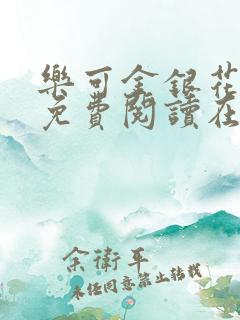 樂可金銀花
免費閱讀在
余衛平
未经同意禁止转载